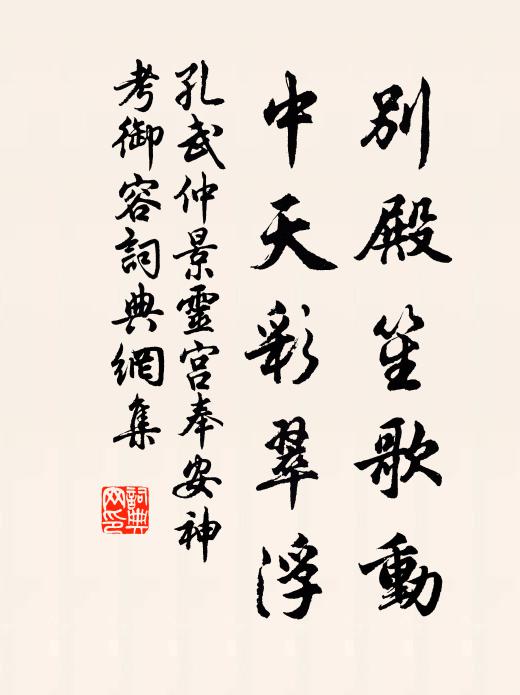 別殿笙歌動
中天彩翠浮
孔武仲景靈宮奉安神
考御容詞典網集
詞典
网印